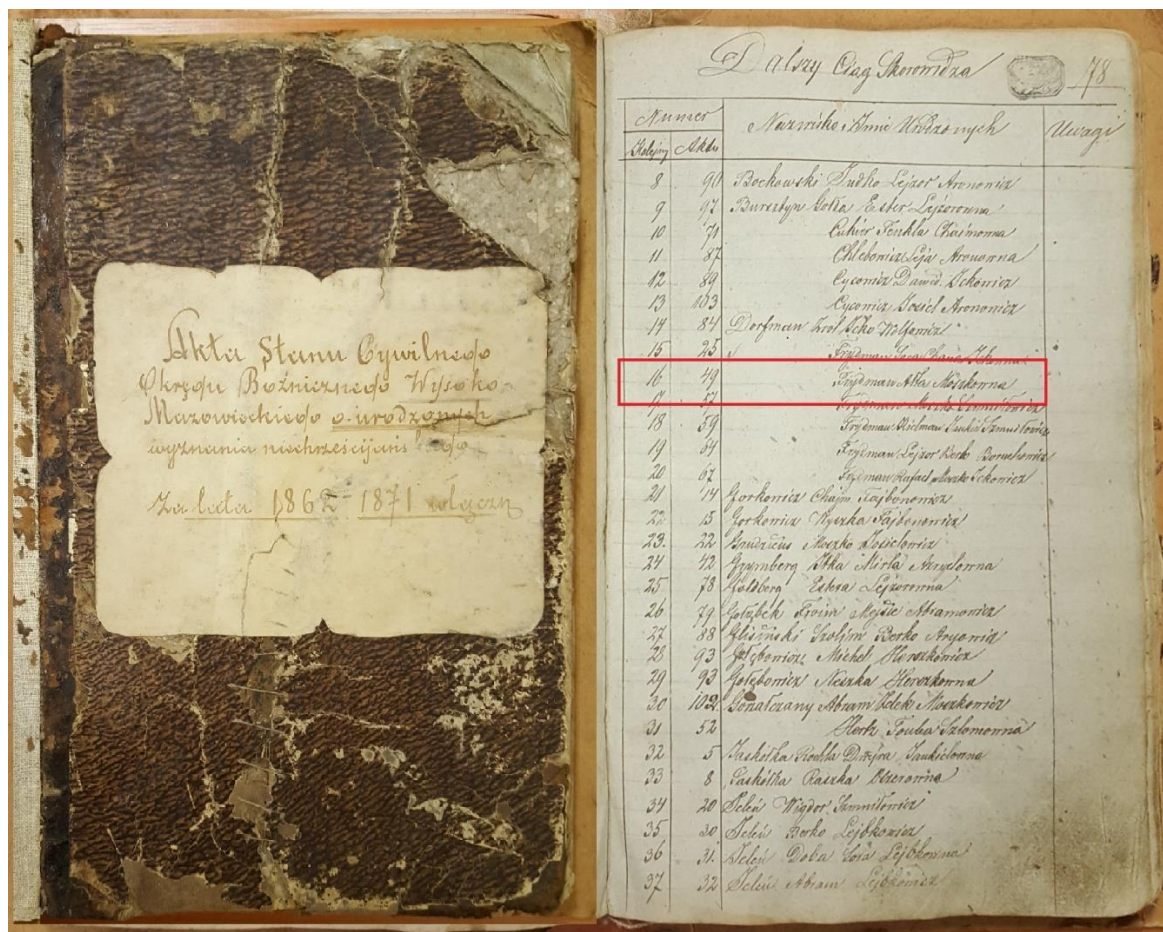 Akta Stanu Cywilnego
Okręgu Bożniczego Wysoko-
Mazowieckiego o urodzonych
wyznania niechrześcijańskiego
Za lata 1862 1871 włączn
Dalszy Ciąg Skorowidza 78
Numer Nazwisko i Imie Urodzonych Uwagi
Kolejny Aktu
8 90 Bochowski Judko Lejzor Aronowicz
9 97 Bursztyn Golda Ester Lejzorowna
10 71 Cukier Fenkla Chaimowna
11 87 Chlebowicz Leja Aronowna
12 89 Cycowicz Dawid Ickowicz
13 103 Cycowicz Josiel Aronowicz
14 84 Dorfman Icko Wolfowicz
15 25 Frydman Sora Chana
16 49 Frydman Atka Moszkowna
17 57 Frydman Moszko
18 59 Frydman Szmulowicz
19 64 Frydman Lejzor Berk Boruchowicz
20 67 Frydman Rafael Moszko Ickowicz
21 14 Gorkowicz Chaim Fajbonowicz
22 13 Gorkowicz Ryszka Fajbonowicz
23 22 Moszko Josielowicz
24 42 Grynberg Itka Mirla
25 78 Goldberg Estera Lejzorowna
26 79 Gołąbek Froim Abramowicz
27 88 Gliziński Szolim Berko
28 93 Gołębowicz Michel Herszkowicz
29 93 Gołębowicz Neszka Herszkowna
30 102 Abram Icek Moszkowicz
31 52 Herk Szlomowna
32 5 Jaskółka Jankielowna
33 8 Jaskółka Raszka
34 20 Jeleń Wigdor Szmulowicz
35 30 Jeleń Berko Lejbkowicz
36 31 Jeleń Doba Sora Lejbkowna
37 32 Jeleń Abram Lejbkowicz